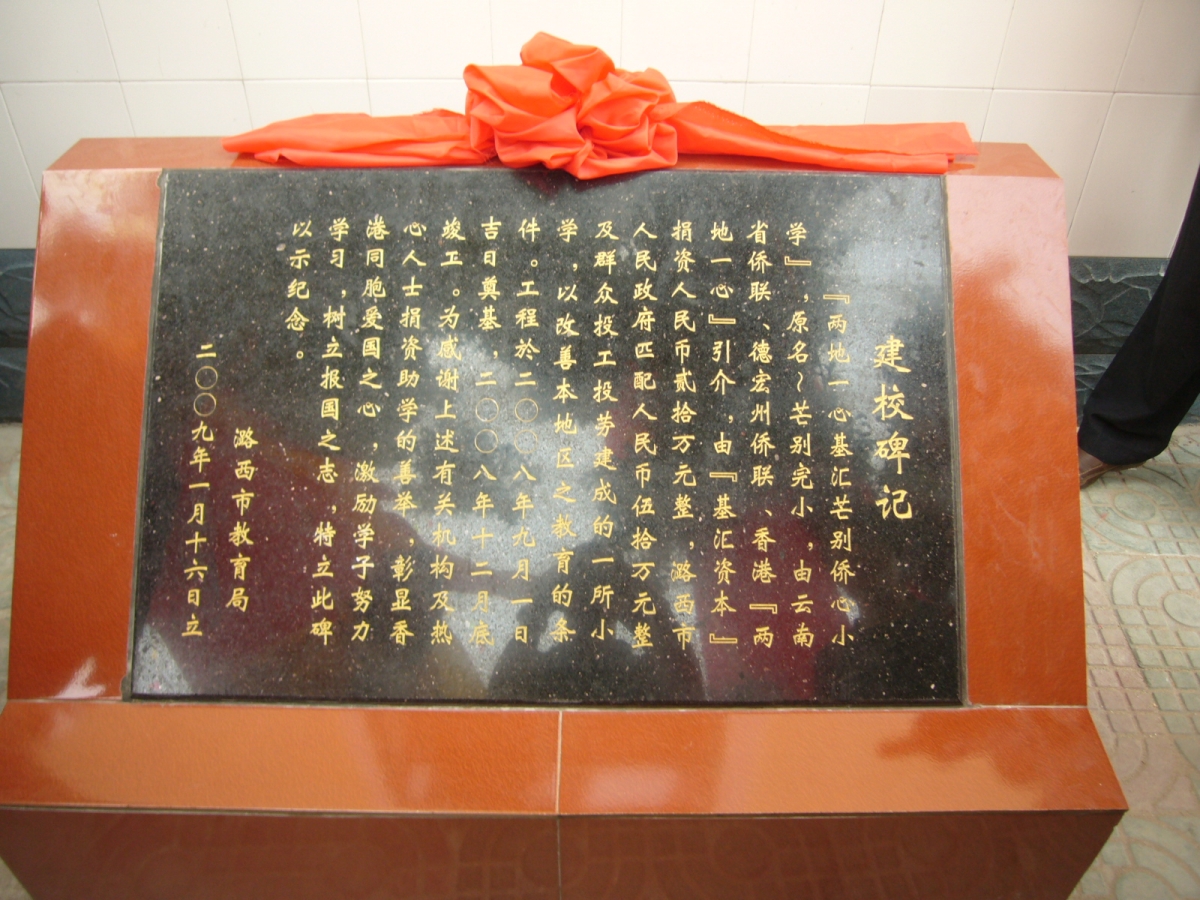 建校碑记
『两地一心基汇芒别侨心小
学』，原名～芒别完小，由云南
省侨联、德宏州侨联、香港『两
地一心』引介，由『基汇资本』
捐资人民币贰拾万元整，潞西市
人民政府匹配人民币伍拾万元整
及群众投工投劳建成的一所小
学，以改善本地区之教育的条
件。工程於二〇〇八年九月一日
吉日奠基，二〇〇八年十二月底
竣工。为感谢上述有关机构及热
心人士捐资助学的善举，彰显香
港同胞爱国之心，激励学子努力
学习，树立报国之志，特立此碑
以示纪念。
潞西市教育局
二〇〇九年一月十六日立